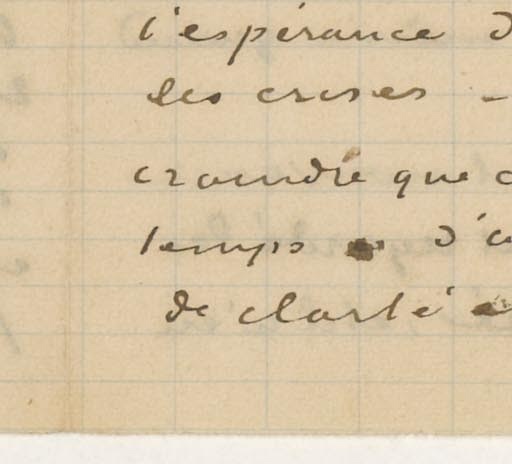 l'espérance d
les crises -
craindre que c
temps d'u
de clarté